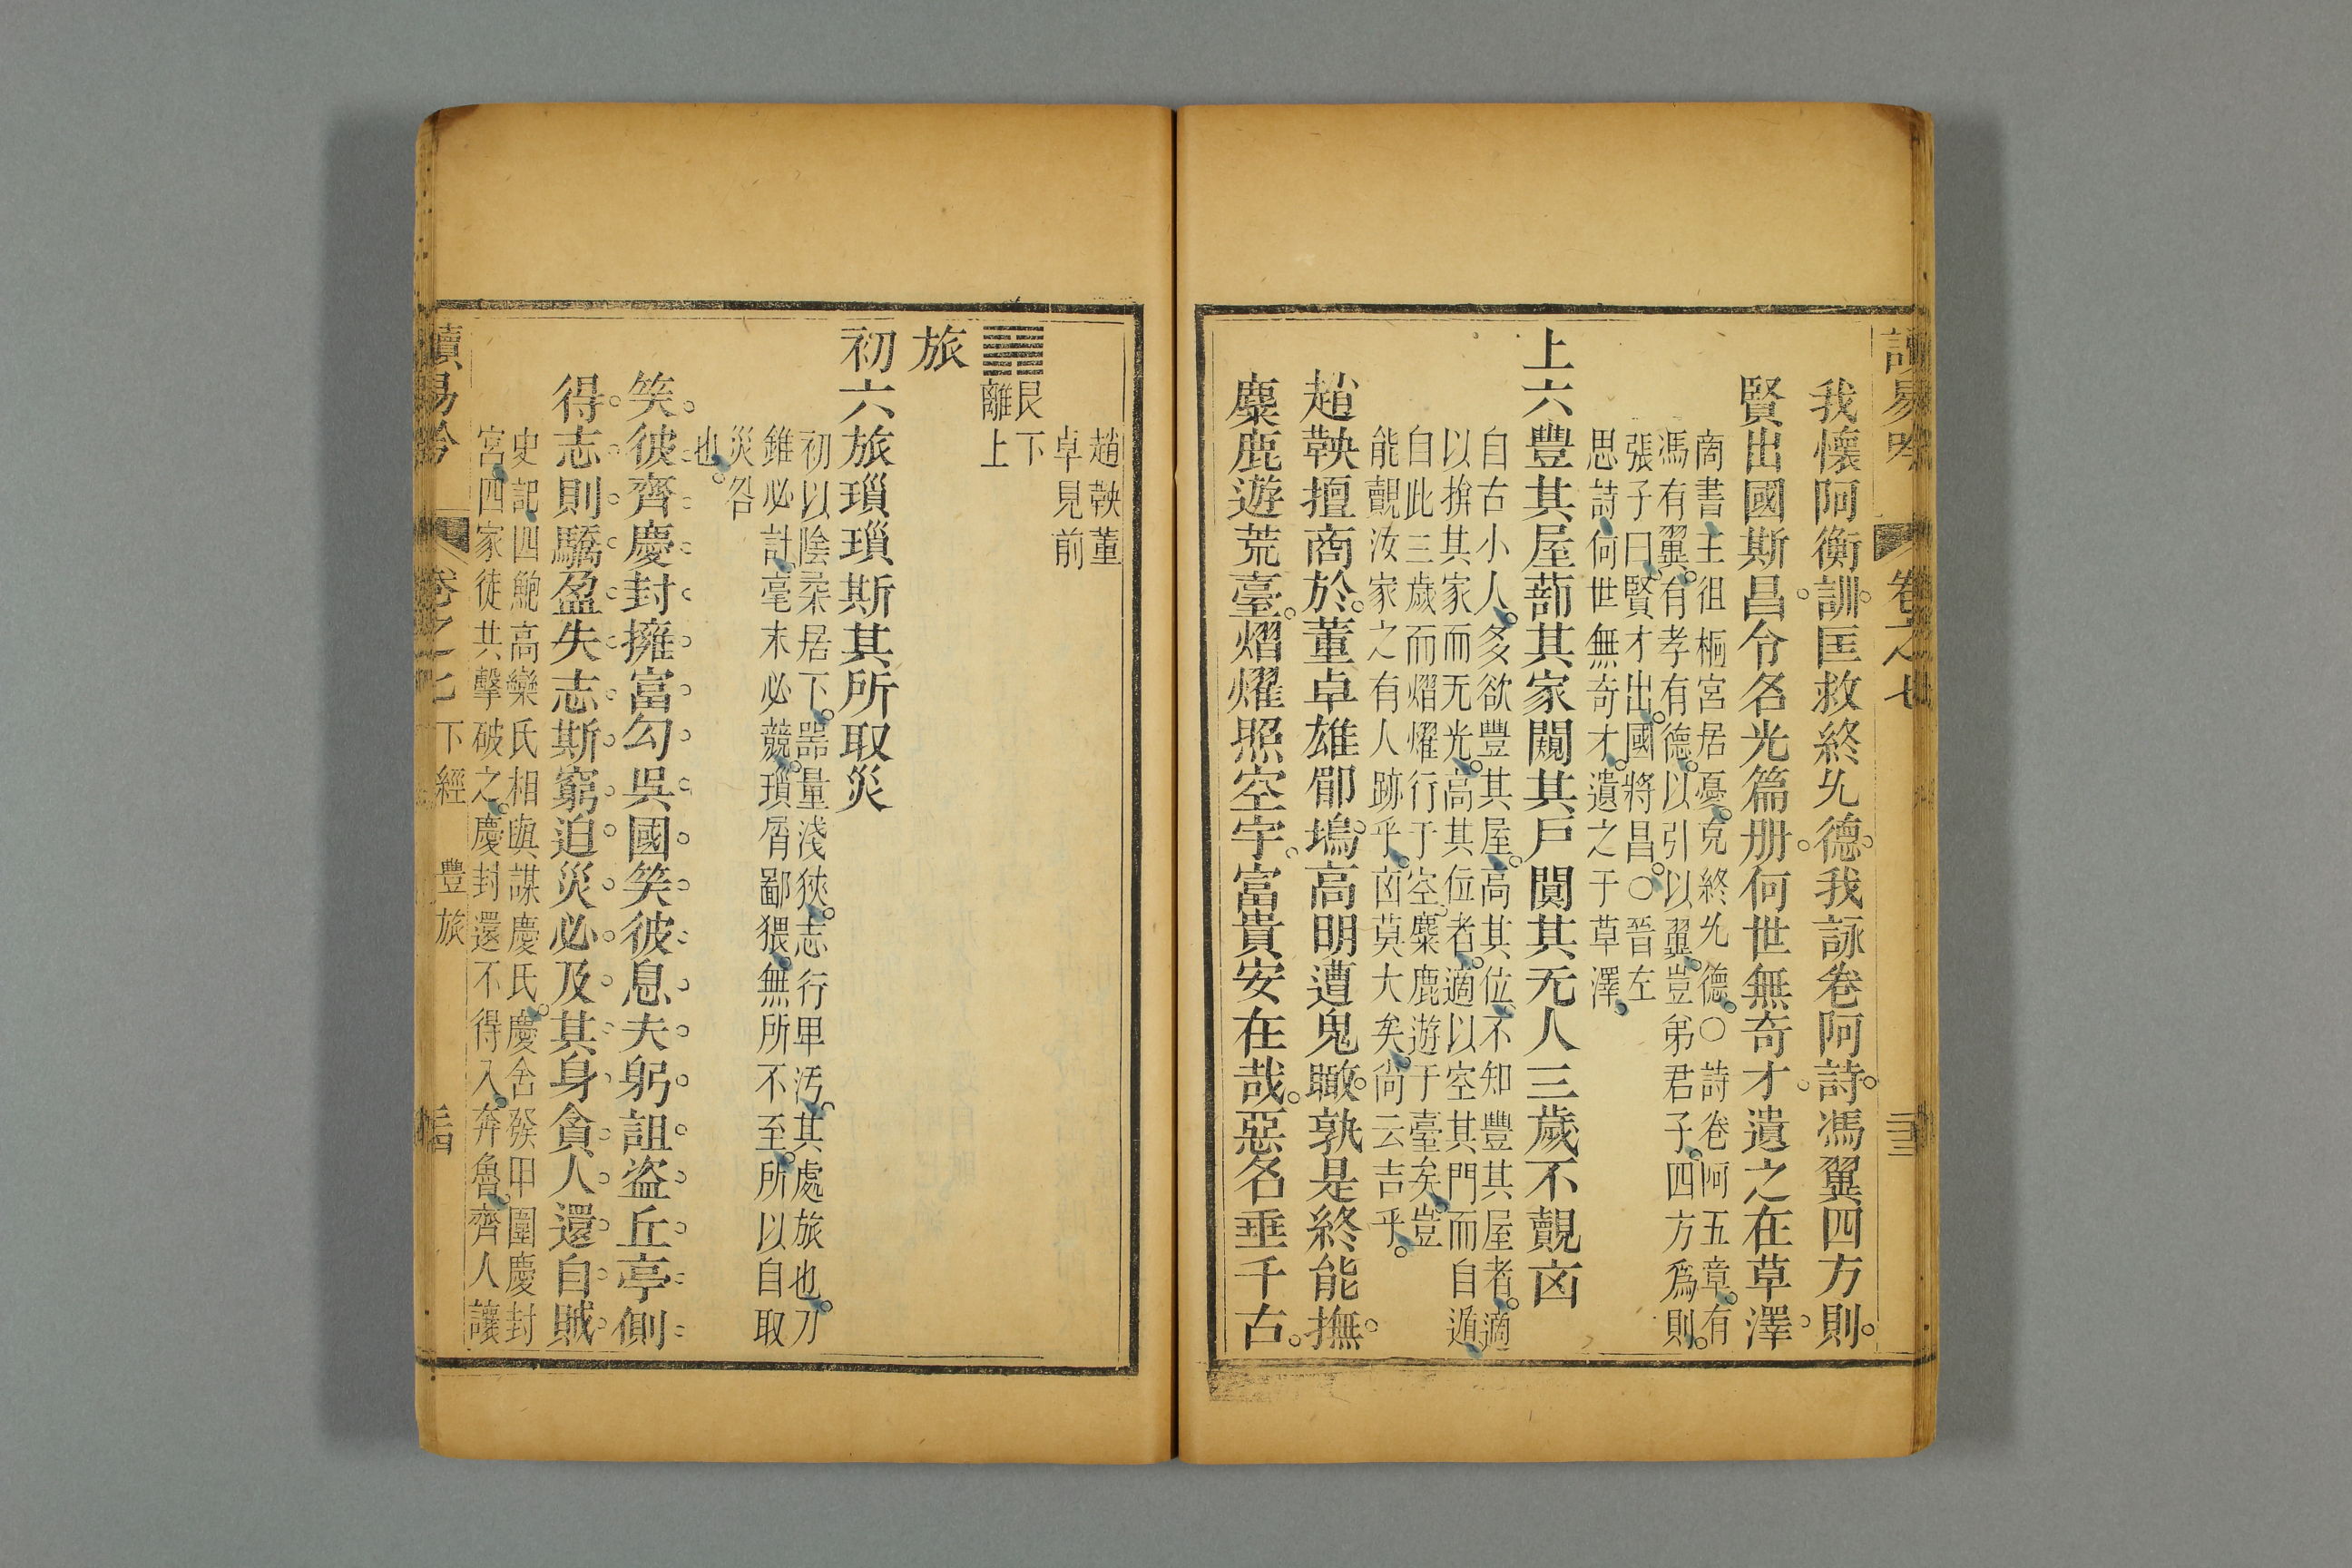 讀易吟 卷之七 三十三
我懷阿衡訓匡救終允德我詠卷阿詩馮翼四方則
賢出國斯昌令名光篇册何世無奇才遺之在草澤
商書王徂桐宮居憂克終允德○詩卷阿五章有
馮有翼有孝有德以引以翼豈弟君子四方爲則
張子曰賢才出國將昌○晉左
思詩何世無奇才遺之于草澤
上六豐其屋蔀其家闚其戶闃其无人三歲不覿凶
自古小人多欲豐其屋高其位不知豐其屋者適
以揜其家而无光高其位者適以空其門而自遁
自此三歲而熠燿行于空麋鹿遊于臺矣豈
能覿汝家之有人跡乎凶莫大矣尚云吉乎
趙鞅擅商於董卓雄郿塢高明遭鬼瞰孰是終能撫
麋鹿遊荒臺熠燿照空宇富貴安在哉惡名垂千古
趙鞅董
卓見前
艮下
離上
旅
初六旅瑣瑣斯其所取災
初以陰柔居下器量淺狹志行卑汚其處旅也刀
錐必計毫末必競瑣屑鄙猥無所不至所以自取
災咎
也
笑彼齊慶封擁富勾吳國笑彼息夫躬詛盗丘亭側
得志則驕盈失志斯窮迫災必及其身貪人還自賊
史記四鮑高欒氏相與謀慶氏慶舍發甲圍慶封
宮四家徒共擊破之慶封還不得入奔魯齊人讓
讀易吟 卷之七 下經 豐旅